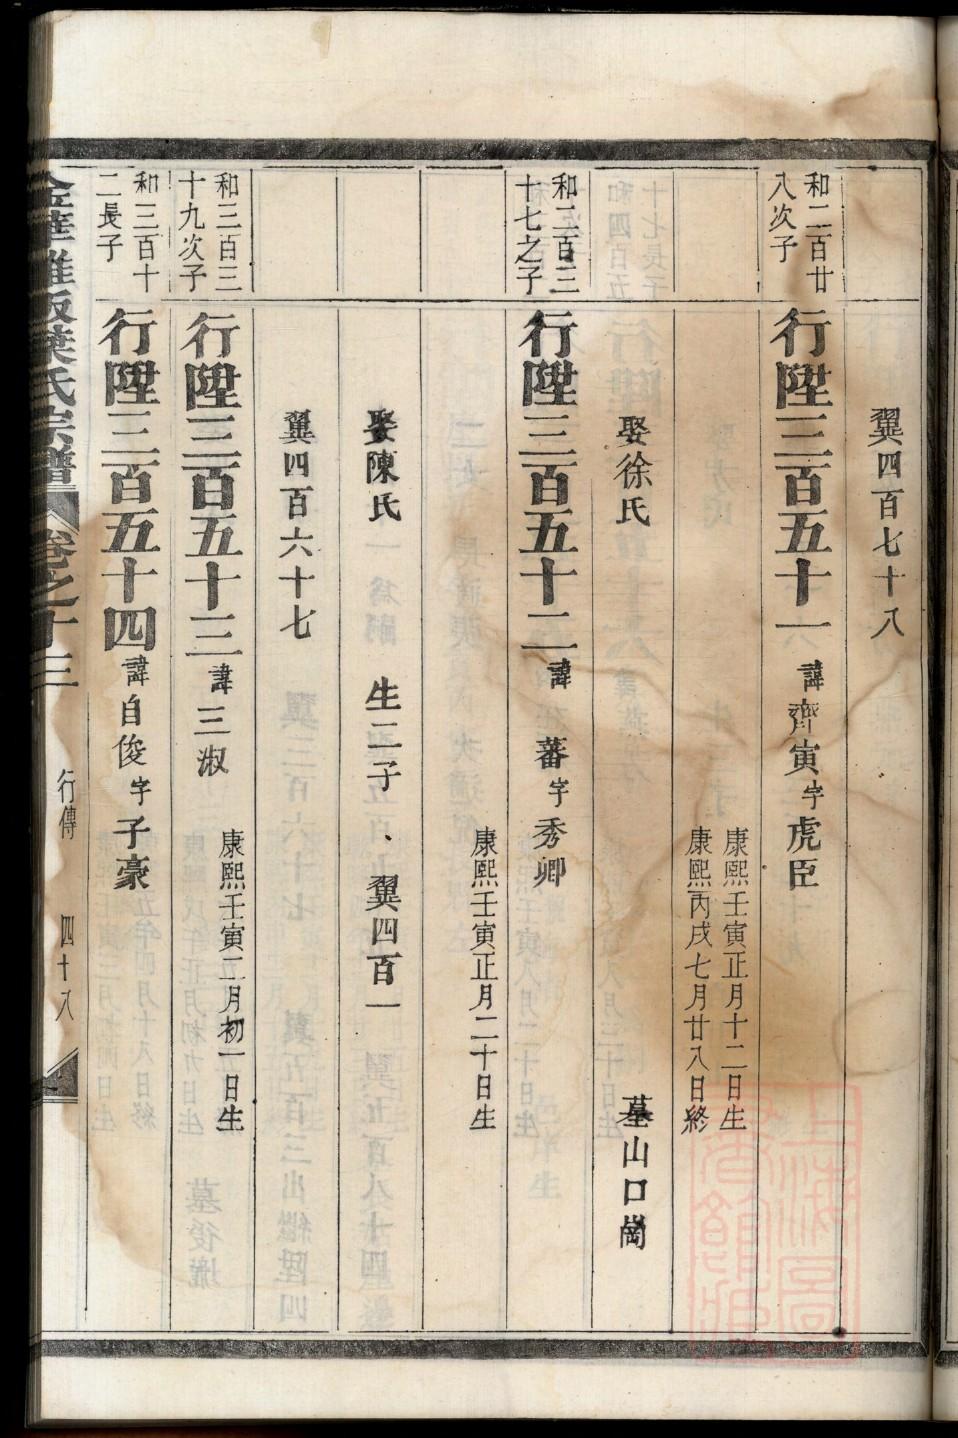 翼四百七十八
和二百廿
八次子
行陞三百五十一 諱齊寅 字虎臣
康熙壬寅正月十二日生
康熙丙戌七月廿八日終
娶徐氏 墓山口崗
和二百三
十七之子
行陞三百五十二 諱蕃 字秀卿
康熙壬寅正月二十日生
娶陳氏 生二子、翼四百一
翼四百六十七
和三百三
十九次子
行陞三百五十三 諱三淑
康熙壬寅二月初一日生
和三百十
二長子
行陞三百五十四 諱自俊 字子豪
葉氏宗譜 卷之十三 行傳 四十八
上海圖書館藏